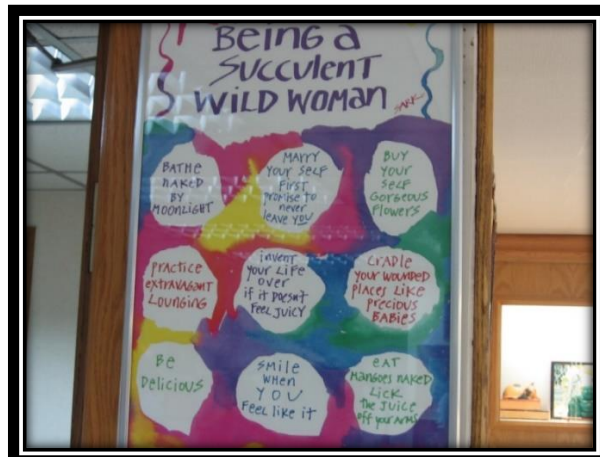 BeinG a
SUCCULENT
WILD WOMAN
SARK
BATHE
NAKED
BY
MOONLIGHT
MARRY
YOUR SELF
FIRST
promise to
never
leave YOU
BUY
YOUR
SELF
GORGEOUS
FLOWERS
PRACTICE
EXTRAVAGANT
LOUNGING
INVENT
YOUR LIFE
OVER
if it DOESN'T
FEEL JUICY
CRADLE
YOUR WOUNDED
PLACES LIKE
PRECIOUS
BABIES
Be
DELICIOUS
SMILE
WHEN
YOU
FEEL LIKE iT
eAT
MANGOES NAKED
LICK
THE JUICE
OFF YOUR ARMS